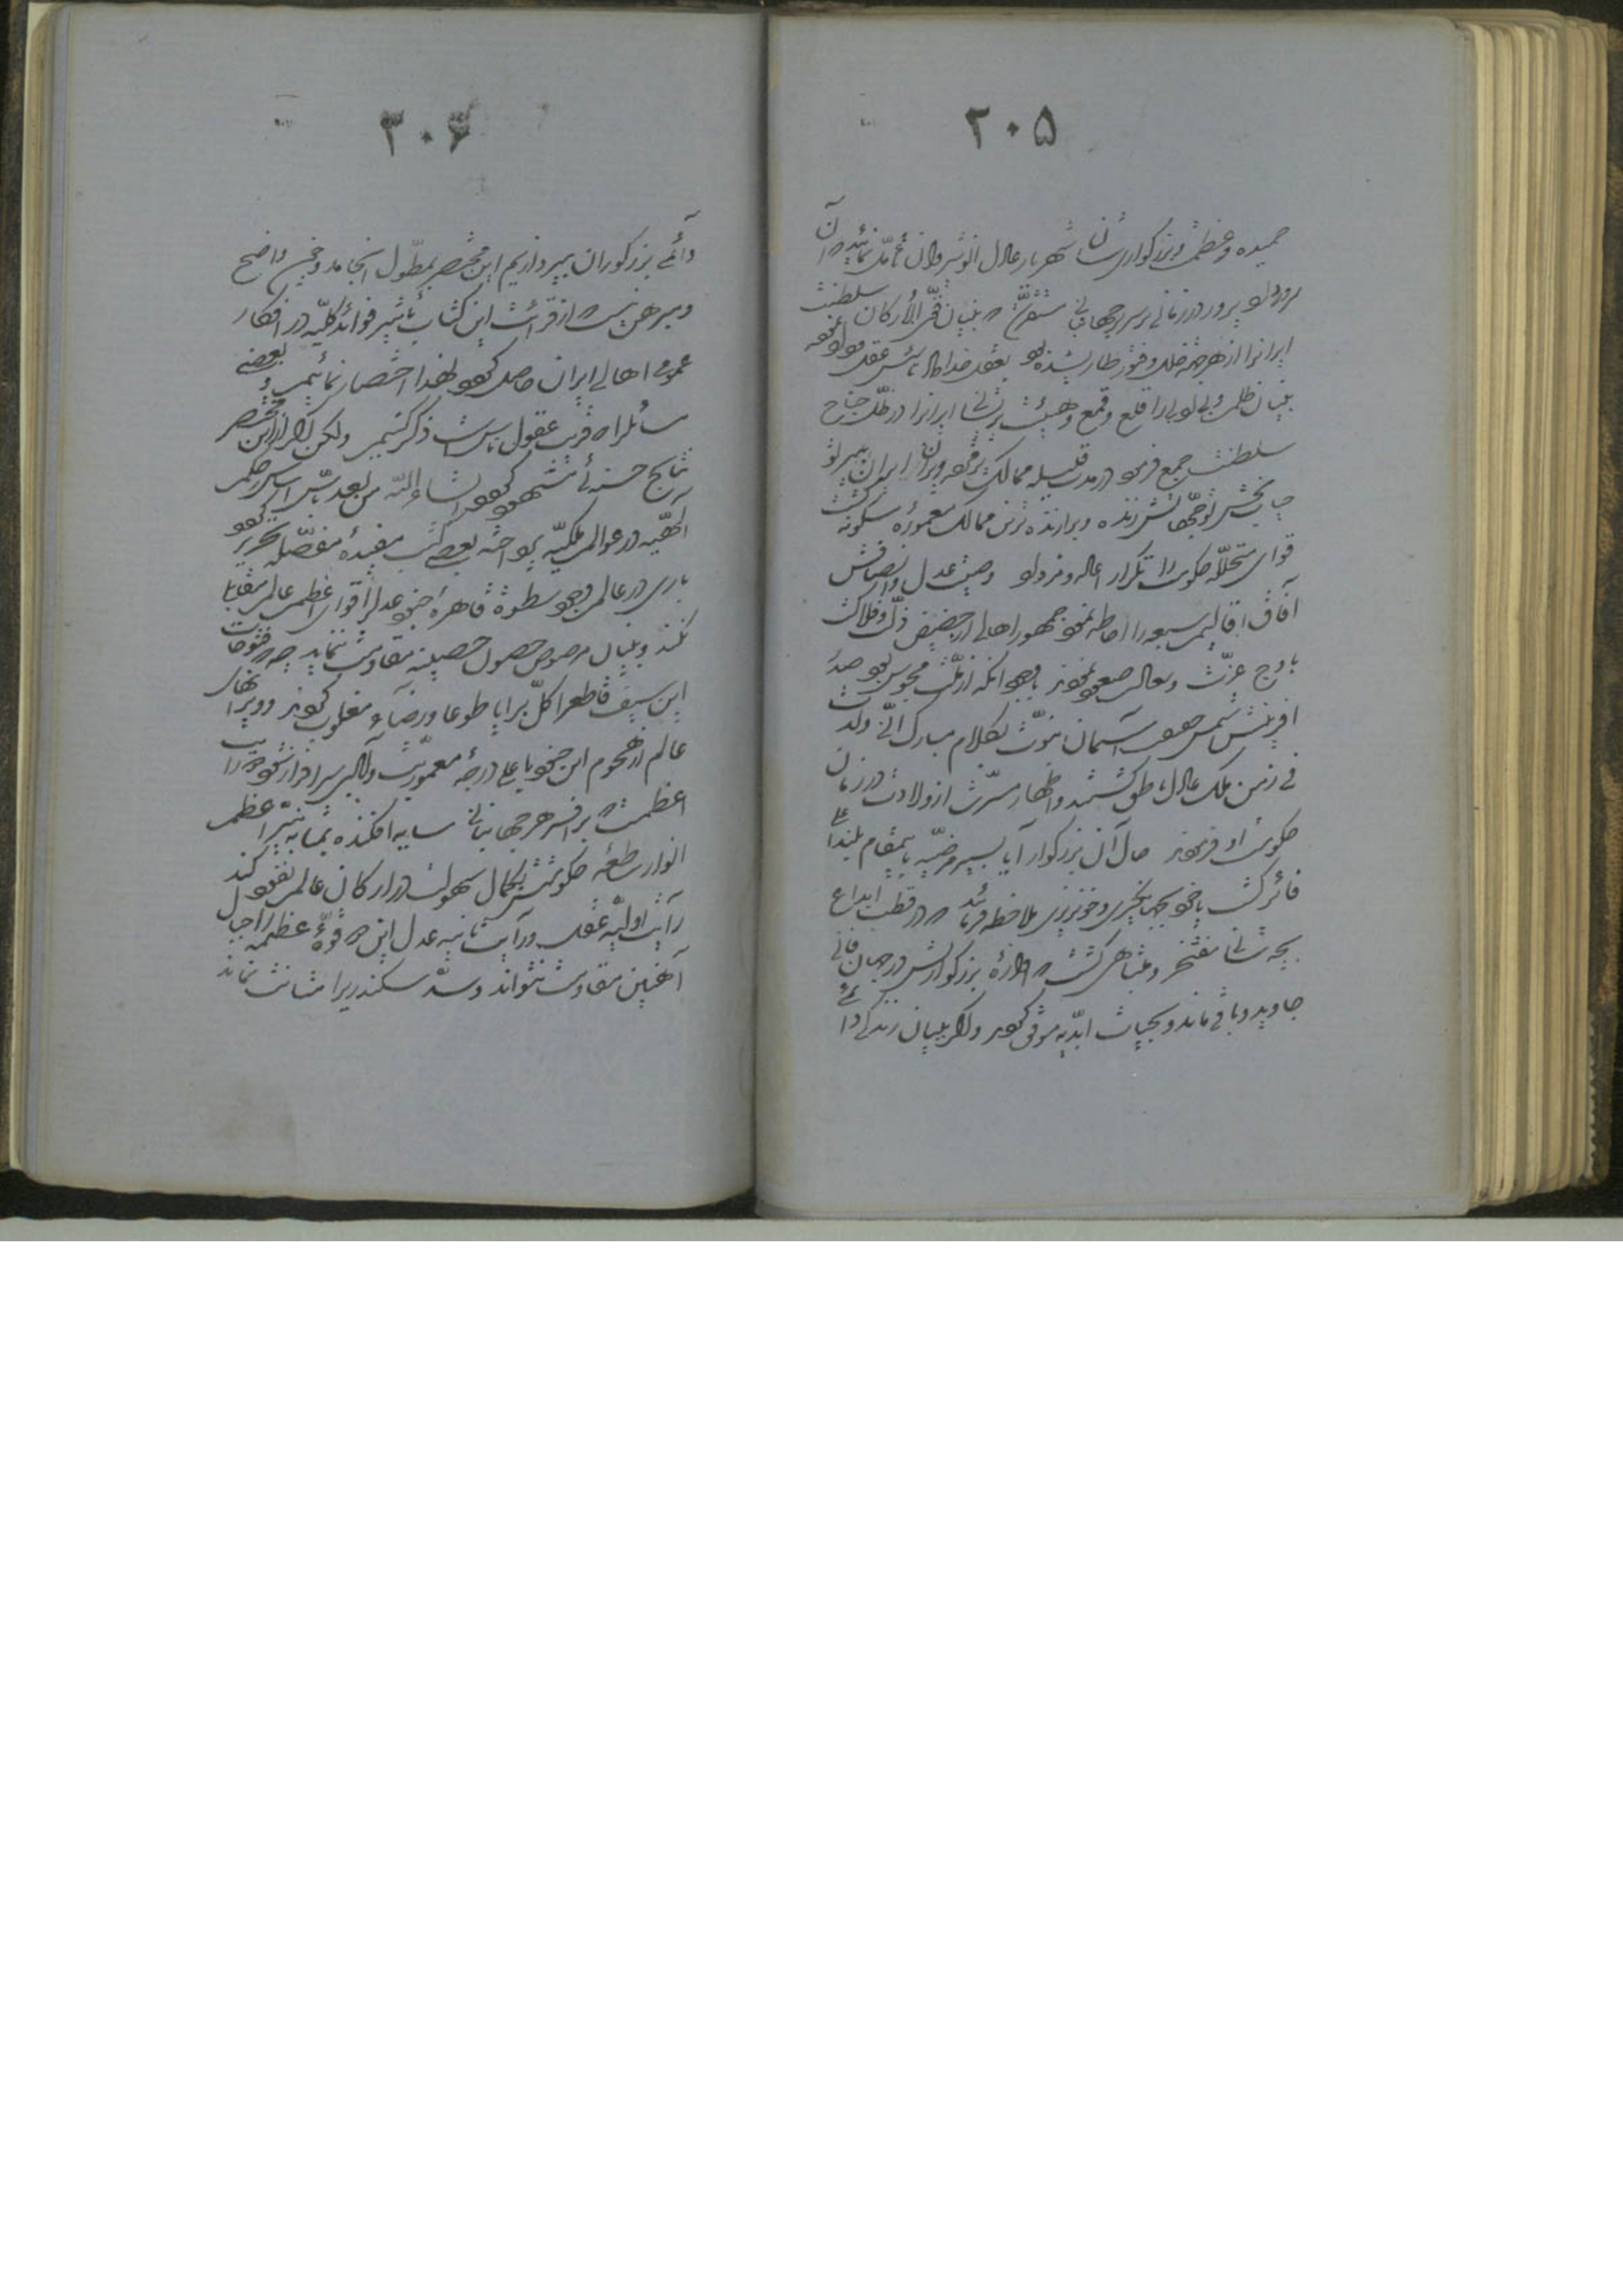 ۲۰۵
حمیده و عظمت و بزرگواری شان شهریار عادل انوشیروان تأمل نمائید که آن
سرور داد پرور در زمانی بر سریر جهانبانی مستقر گشت که بنیان قوی الأرکان سلطنت
ایرانرا از هر جهة خلل و فتور طاری شده بود بعقل خداداد تأسیس عقل و داد نموده
بنیان ظلم و بی‌دادی را قلع و قمع و هیئت پریشان ایرانرا در ظل جناح
سلطنت جمع فرمود در مدت قلیله ممالک پژمرده ویران ایران بسر تو
حیات بخش توجهاتش زنده و برازنده ترین ممالک معموره مسکونه گشت
قوای متحلله حکومت را تکرار اعاده فرمود و صیت عدل و انصافش
آفاق اقالیم سبعه را احاطه نمود جمهور اهالی از حضیض ذلت و فلاکت
باوج عزت و سعادت صعود نمودند با وجود آنکه از ملت مجوس بود صدر
آفرینش شمس حقیقت آسمان نبوت بکلام مبارک انی ولدت
فی زمن ملک عادل ناطق گشتند و اظهار مسرت از ولادت در زمان
حکومت او فرمودند حال آن بزرگوار آیا بسیر مرضیه باین مقام بلند اعلی
فائز گشت یا خود بجهانگیری و خونریزی ملاحظه فرمائید که در قطب ابداع
بچه شأنی مفتخر و متباهی گشت که آوازه بزرگواریش در جهان فانی
جاوید و باقی ماند و بحیات ابدیه موفق گردید و اگر ببیان زندگی دا
۳۰۶
دائمی بزرگواران بپردازیم این مختصر بمطول انجامد و چون واضح
و مبرهن نیست که از قرائت این کتاب تأثیر فوائد کلیه در افکار
عموم اهالی ایران حاصل گردد لهذا اختصار نمائیم و بعضی
مسائل را که قریب عقول ناس است ذکر کنیم ولکن اگر از این مختصر
نتایج حسنه‌ئی مشهود گردد انشاء الله من بعد بتأسیس اس اساس حکم
الهیه در عوالم ملکیه پرداخته بعضی کتب مفیده مفصله تحریر گردد
باری در عالم وجود سطوة قاهره جنود عدل را قوای اعظم عالم مقابله
نکند و بنیان مرصوص حصون حصینه مقاومت ننماید چه که فتوحات
این سیف قاطع را کل برایا طوعا و رضاء مغلوب گردند و ویرانهای
عالم از هجوم این جنود باعلی درجه معموریت و آبادی سرافراز شود دو رایت
اعظمست که بر افسر هر جهانبانی سایه افکنده بمثابه نیر اعظم
انوار ساطعه حکومتش بکمال سهولت در ارکان عالم نفوذ کند
رایت اولیه عقل و رایت ثانیه عدل این دو قوه عظیمه را جبال
آهنین مقاومت نتواند و سد سکندریرا متانت نماند